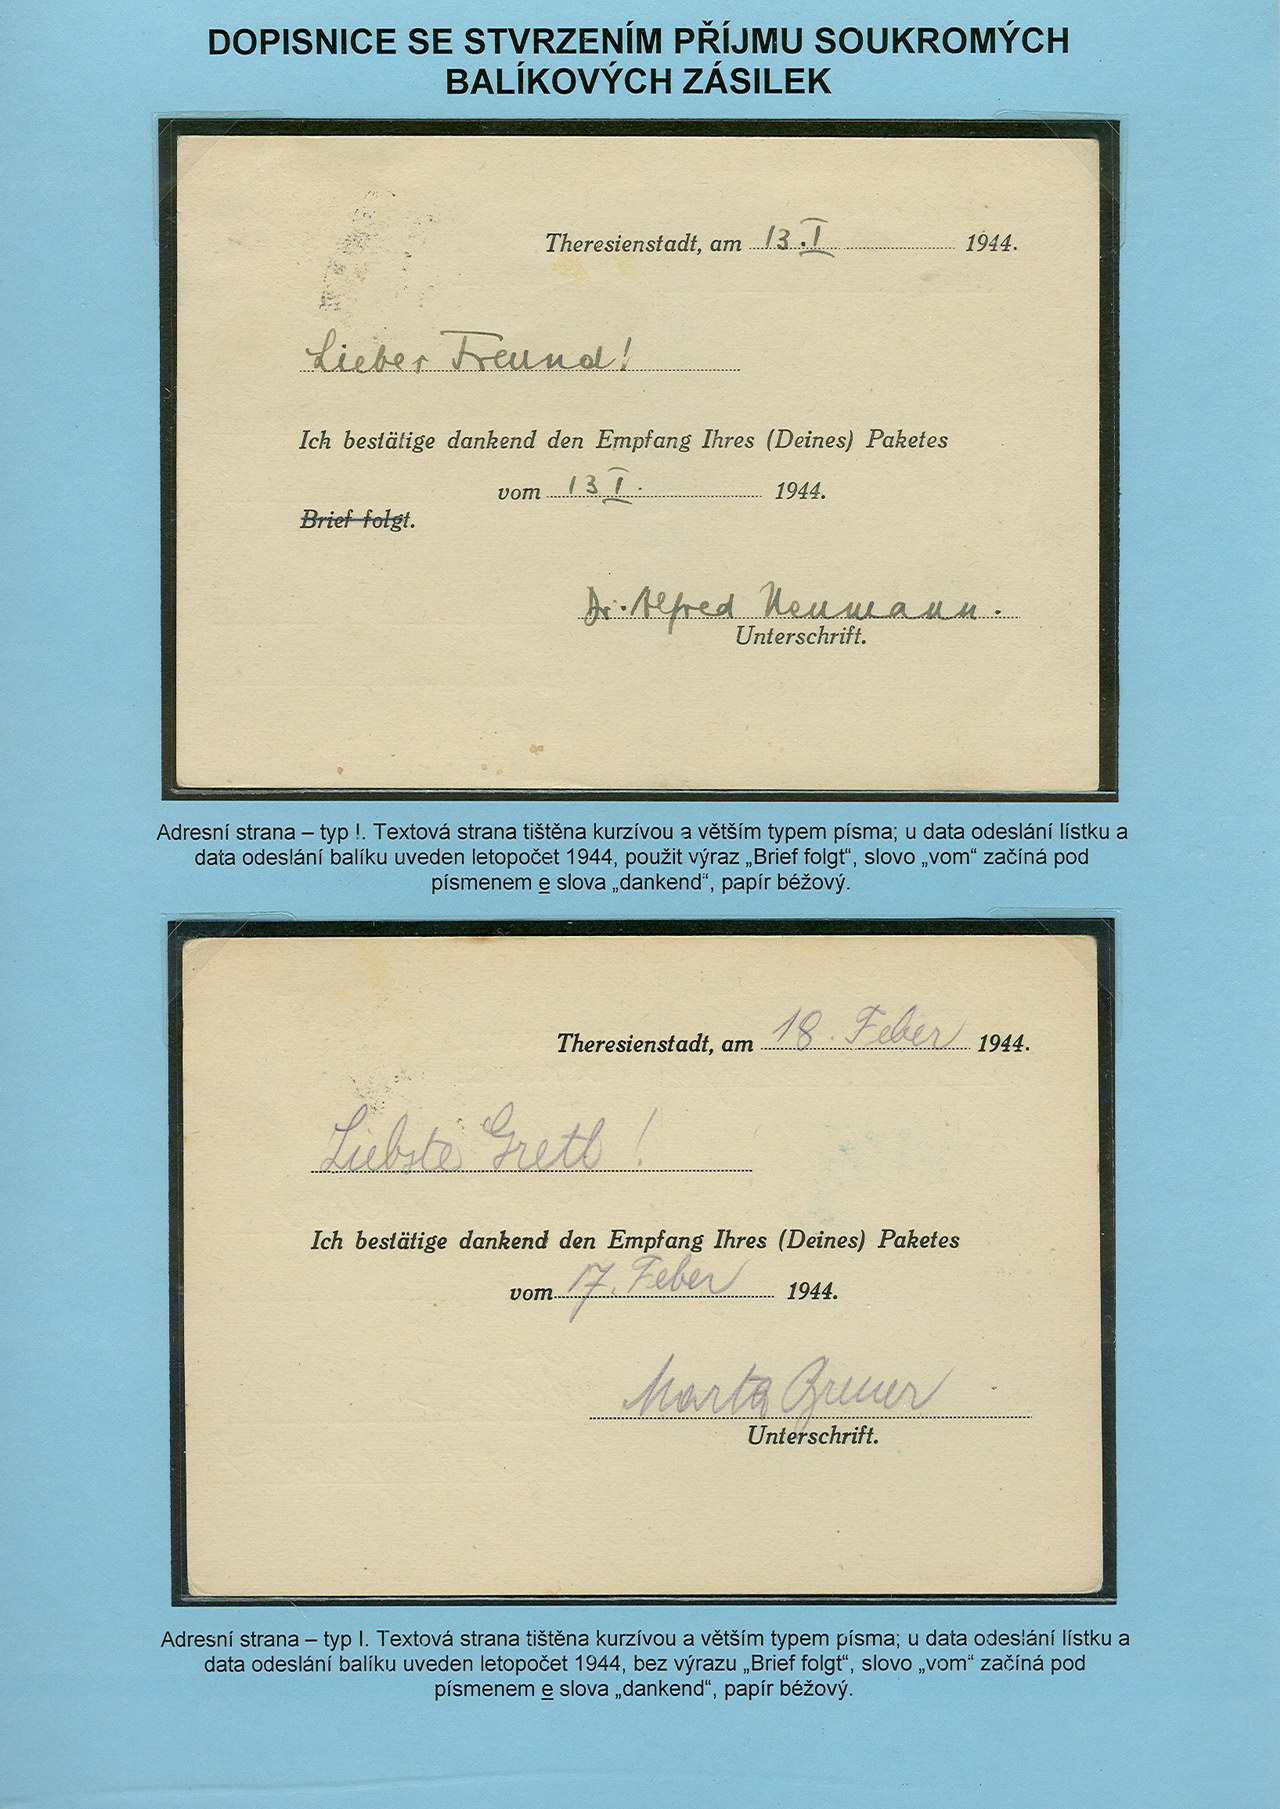 DOPISNICE SE STVRZENÍM PŘÍJMU SOUKROMÝCH
BALÍKOVÝCH ZÁSILEK
Theresienstadt, am 13.I 1944.
Lieber Freund!
Ich bestätige dankend den Empfang Ihres (Deines) Paketes
vom 13 I. 1944.
Brief folgt.
Dr. Alfred Neumann.
Unterschrift.
Adresní strana – typ I. Textová strana tištěna kurzívou a větším typem písma; u data odeslání lístku a
data odeslání balíku uveden letopočet 1944, použit výraz „Brief folgt“, slovo „vom“ začíná pod
písmenem e slova „dankend“, papír béžový.
Theresienstadt, am 18. Feber 1944.
Liebste Gretl!
Ich bestätige dankend den Empfang Ihres (Deines) Paketes
vom 17. Feber 1944.
Marta Breuer
Unterschrift.
Adresní strana – typ I. Textová strana tištěna kurzívou a větším typem písma; u data odeslání lístku a
data odeslání balíku uveden letopočet 1944, bez výrazu „Brief folgt“, slovo „vom“ začíná pod
písmenem e slova „dankend“, papír béžový.